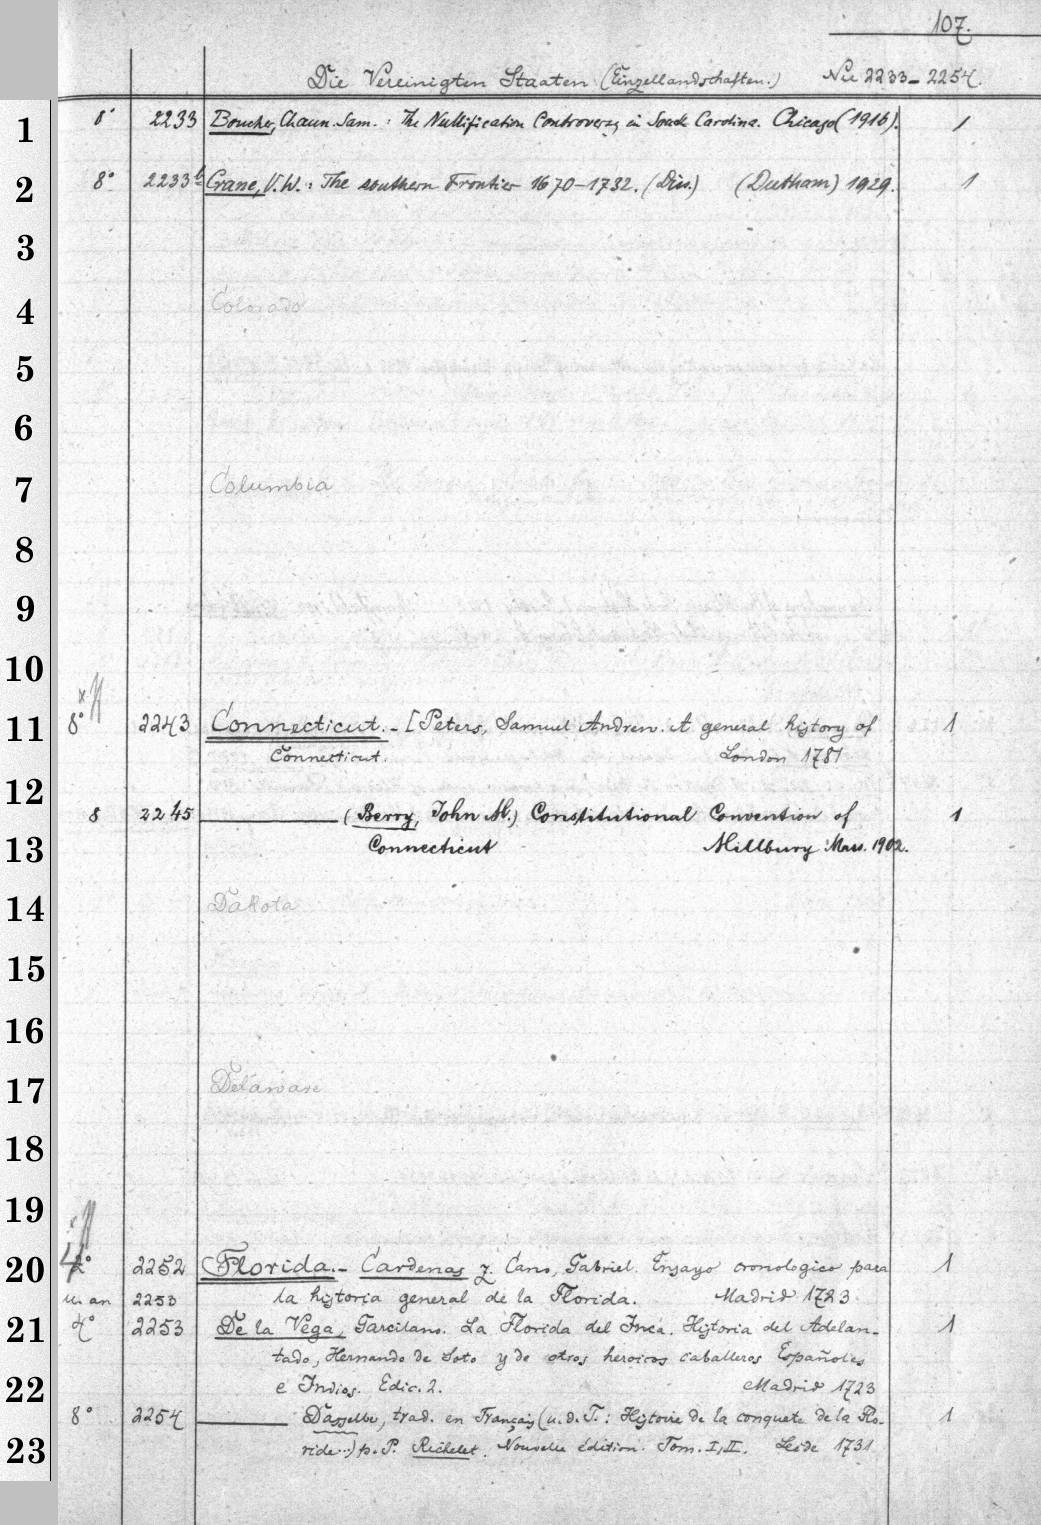 107.
Die Vereinigten Staaten (Einzellandschaften.) Nr. 2233–2254.
1 8° 2233 Boucher, Chaun. Sam. : The Nullification Controversy in South Carolina. Chicago (1916). 1
2 8° 2233b Crane, V. W. : The southern Frontier 1670–1732. (Diss.) (Durham) 1929. 1
3
4 Colorado
5
6
7 Columbia
8
9
10
11 8° 2243 Connecticut. – [Peters, Samuel Andrew. A general history of 1
Connecticut. London 1781
12 8 2245 ——— (Berry, John M.) Constitutional Convention of 1
13 Connecticut Millbury Mass. 1902.
14 Dakota
15
16
17 Delaware
18
19
20 4° 2252 Florida. – Cardenas z. Cano, Gabriel. Ensayo cronologico para 1
u. an 2253 la historia general de la Florida. Madrid 1723
21 4° 2253 De la Vega, Garcilaso. La Florida del Inca. Historia del Adelan- 1
tado, Hernando de Soto y de otros heroicos caballeros Españoles
22 e Indios. Edic. 2. Madrid 1723
8° 2254 ——— Dasselbe, trad. en Français (u. d. T.: Histoire de la conquete de la Flo- 1
23 ride..) p. P. Richelet. Nouvelle édition. Tom. I, II. Leide 1731